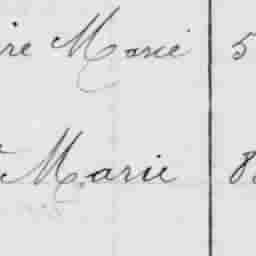 ire Marie 5
Marie 8